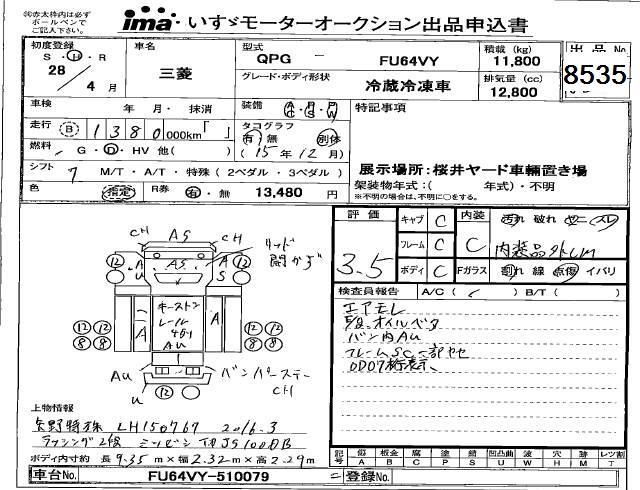 ㊟赤太枠内は必ず
ボールペンで
ご記入下さい。
ima いすゞモーターオークション出品申込書
初度登録 S・H・R 28年 4月
車名 三菱
型式 QPG - FU64VY
積載 (kg) 11,800
グレード・ボディ形状 冷蔵冷凍車
排気量 (cc) 12,800
出品No. 8535
車検 年 月・抹消
装備 A/C・P/S・P/W
特記事項
走行 B 1380 000km「 」
タコグラフ 有・無 別体
(15年12月)
燃料 G・D・HV 他( )
シフト 7 M/T・A/T・特殊(2ペダル・3ペダル)
展示場所:桜井ヤード車輌置き場
架装物年式:( 年式)・不明
※不明の場合は、不明に○をする。
色 指定 R券 有・無 13,480 円
評価 3.5
キャブ C
フレーム C
ボディ C
内装 C
汚れ 破れ ヤニ スレ
内装品外しM
Fガラス 割れ 線 点傷 イバリ
検査員報告 A/C ( ) B/T ( )
エアモレ
オイルベタ
バン内AU
フレームSC一部ヤセ
OD07桁表示、
CH AS CH
リッド
開かず
12 A AS A 12
U S
キーストン
レール
4列
AU
A A
12 12 12 12
8 8 8 8
AU
U
バンパーステー
CH
12
上物情報
矢野特殊 LH150767 2016.3
ラッシング2段 ミツビシ TDJS100DB
ボディ内寸約 長 9.35 m×幅 2.32 m×高 2.29 m
記号 傷 A 板金 B 腐 C 塗 P 錆 S 凹凸曲 U 波 W 穴 H 跡 M レツ割 T
車台No. FU64VY-510079
登録No.